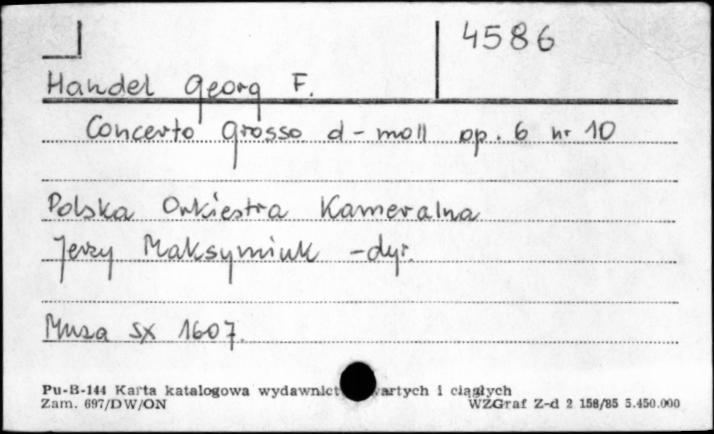 4586
Handel Georg F.
Concerto grosso d-moll op. 6 nr 10
Polska Orkiestra Kameralna
Jerzy Maksymiuk - dyr.
Muza SX 1607.
Pu-B-144 Karta katalogowa wydawnict wartych i ciągłych
Zam. 697/DW/ON WZGraf Z-d 2 158/85 5.450.000